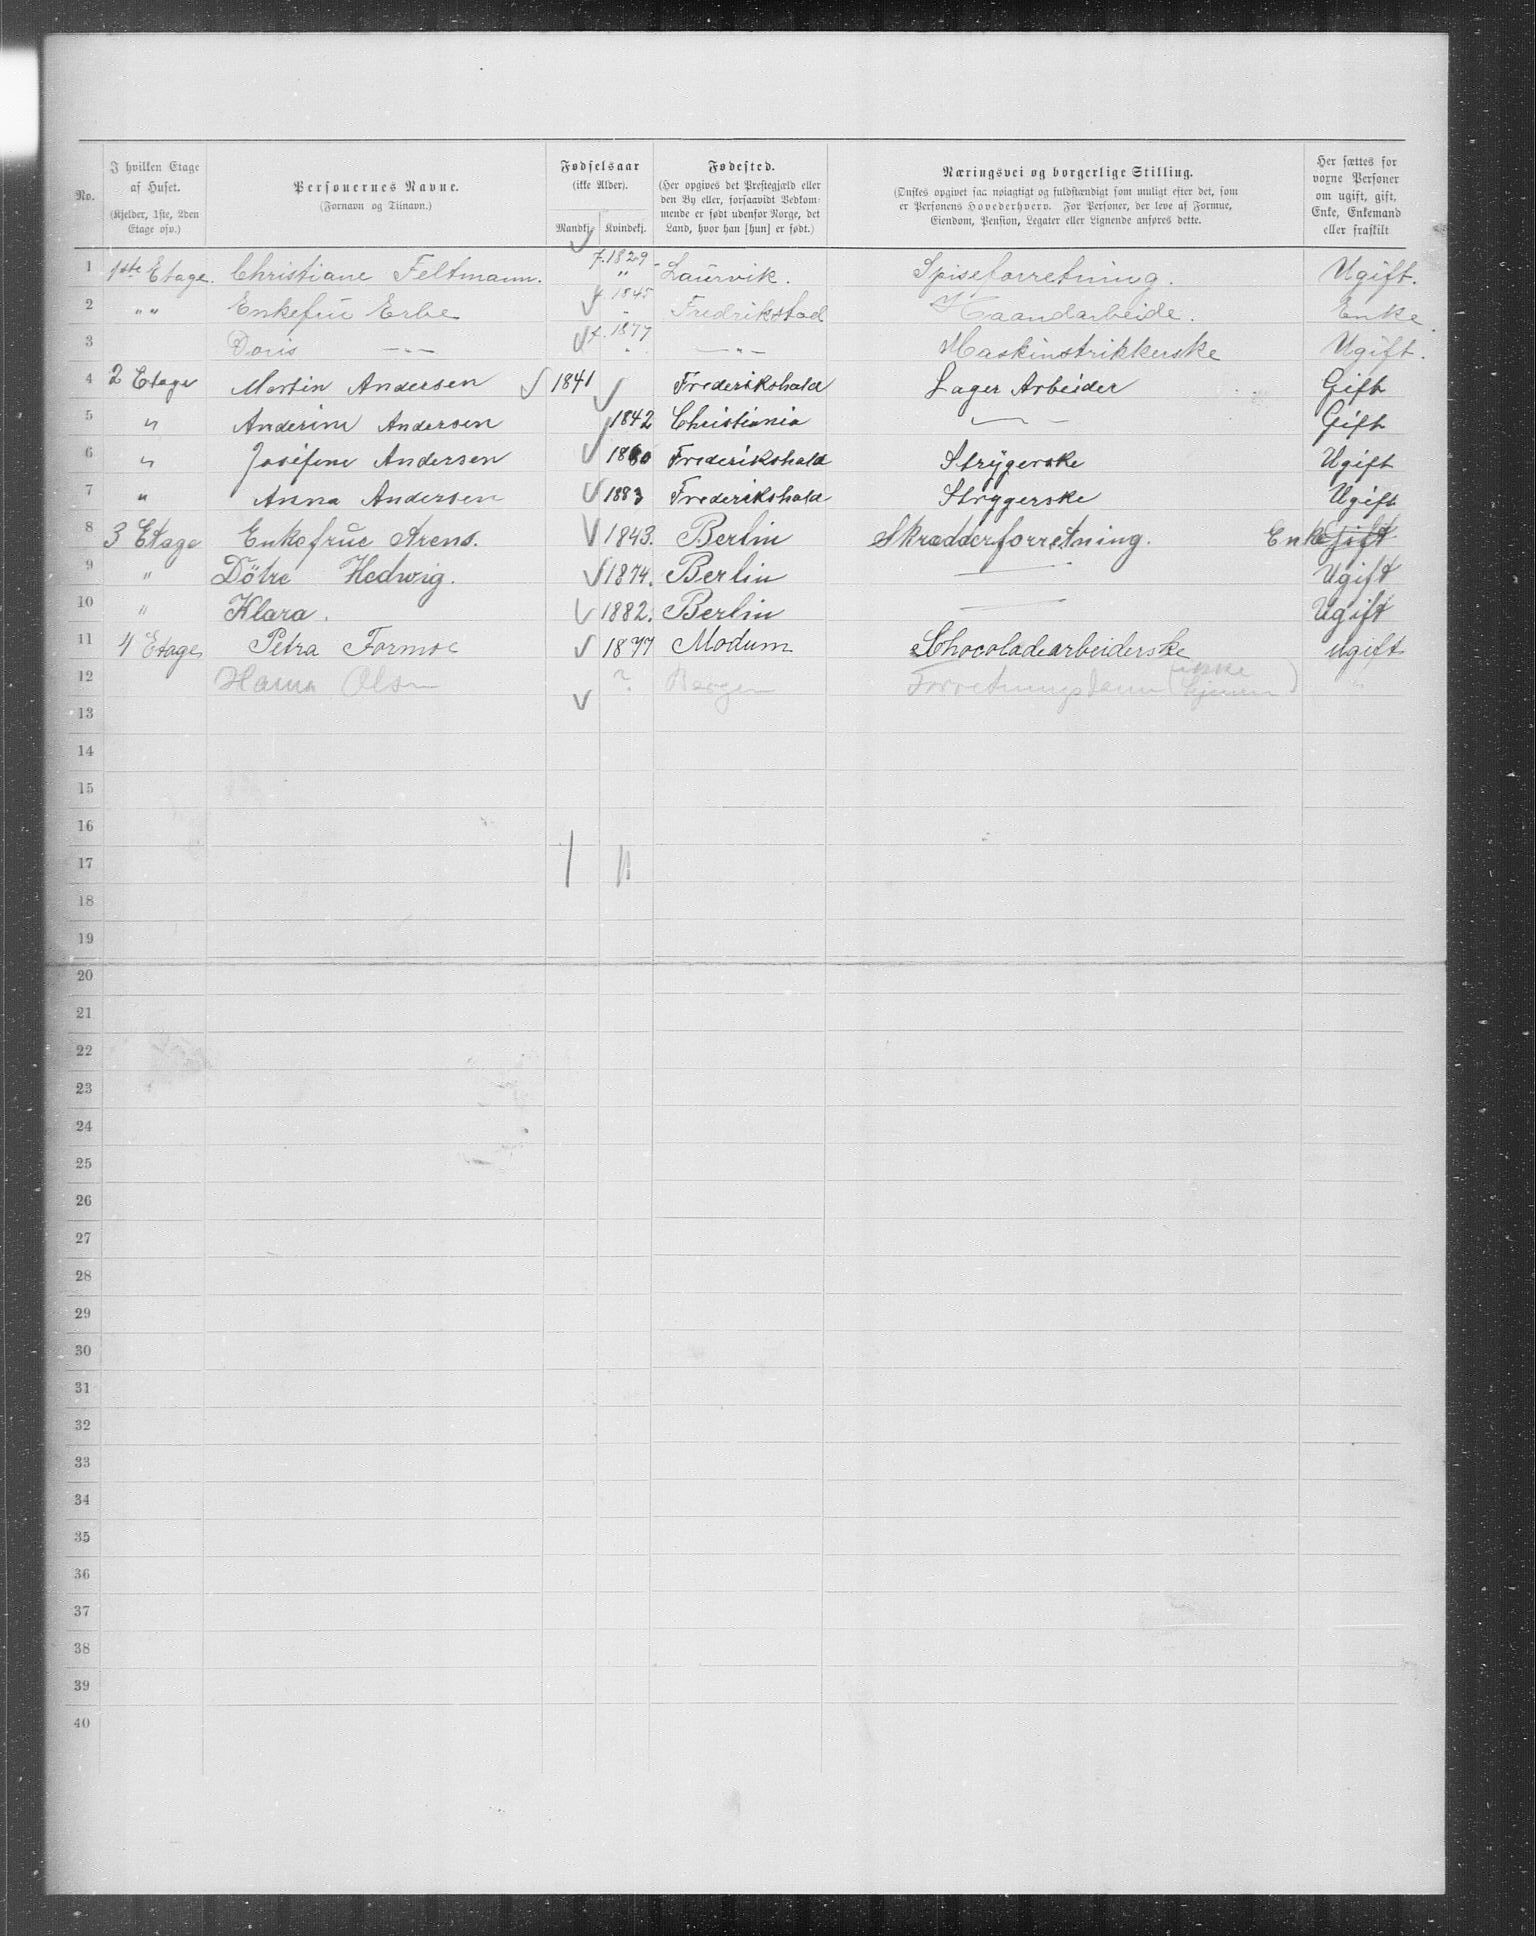 No.
I hvilken Etage af Huset. (Kjelder, 1ste, 2den Etage osv.)
Personernes Navne. (Fornavn og Tilnavn.)
Fødselsaar (ikke Alder). Mandkj. Kvindekj.
Fødested. (Her opgives det Prestegjæld eller den By eller, forsaavidt Vedkommende er født udenfor Norge, det Land, hvor han [hun] er født.)
Næringsvei og borgerlige Stilling. (Ønskes opgivet saa nøiagtigt og fuldstændigt som muligt efter det, som er Personens Hovederhverv. For Personer, der leve af Formue, Eiendom, Pension, Legater eller Lignende anføres dette.
Her sættes for voxne Personer om ugift, gift, Enke, Enkemand eller fraskilt
1 1ste Etage. Christiane Feltmann. f. 1829 Laurvik. Spiseforretning. Ugift.
2 " " Enkefru Erbe f. 1845 Fredrikstad Haandarbeide. Enke.
3 Doris —"— f. 1877 —"— Maskinstrikkerske Ugift.
4 2 Etage Martin Andersen 1841 Frederikshald Lager Arbeider Gift
5 " Anderine Andersen 1842 Christiania — Gift
6 " Josefine Andersen 1880 Frederikshald Strygerske Ugift
7 " Anna Andersen 1883 Frederikshald Strygerske Ugift
8 3 Etage Enkefrue Arens. 1843. Berlin Skrædderforretning. Enke Gift
9 " Dötre Hedwig. 1874. Berlin — Ugift
10 " Klara. 1882. Berlin — Ugift
11 4 Etage Petra Formoe 1877 Modum Schocoladearbeiderske ugift
12 Hanna Olsen ? Bergen Forretningsdame (ikke hjemme) "
13
14
15
16
17
18
19
20
21
22
23
24
25
26
27
28
29
30
31
32
33
34
35
36
37
38
39
40